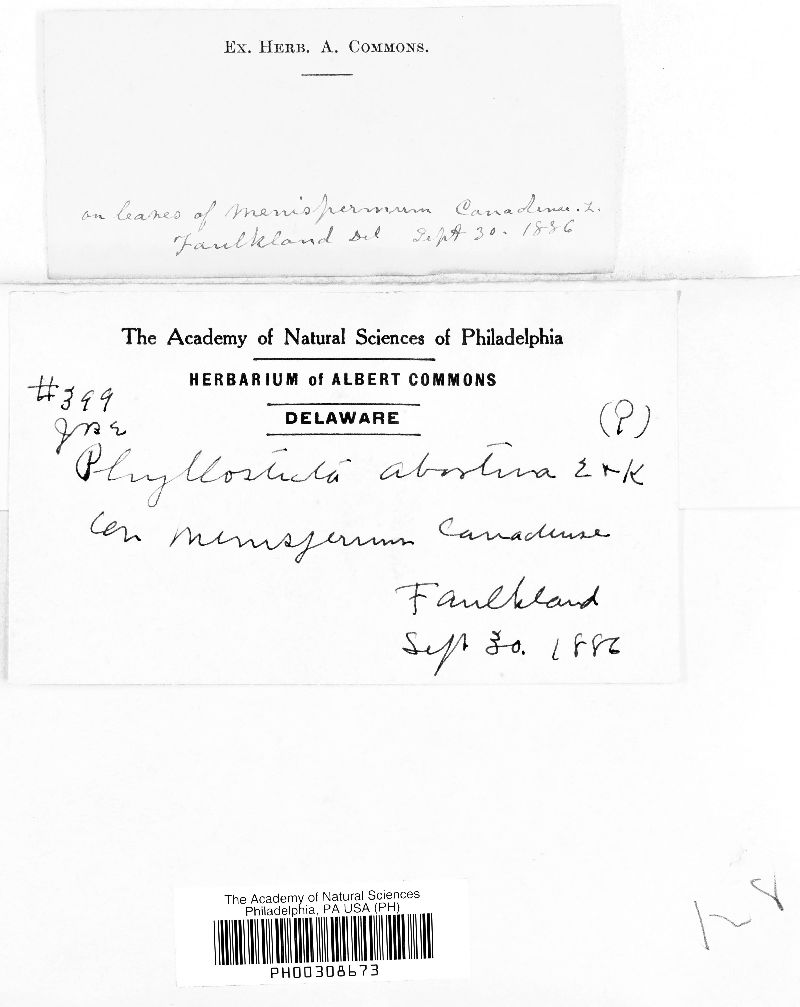 Ex. Herb. A. Commons.
on leaves of Menispermum Canadense. L.
Faulkland Del Sept 30. 1886
The Academy of Natural Sciences of Philadelphia
HERBARIUM of ALBERT COMMONS
DELAWARE
#399
JBE
(P)
Phyllosticta abortiva E & K
on Menispermum Canadense
Faulkland
Sept 30. 1886
The Academy of Natural Sciences
Philadelphia, PA USA (PH)
PH00308673